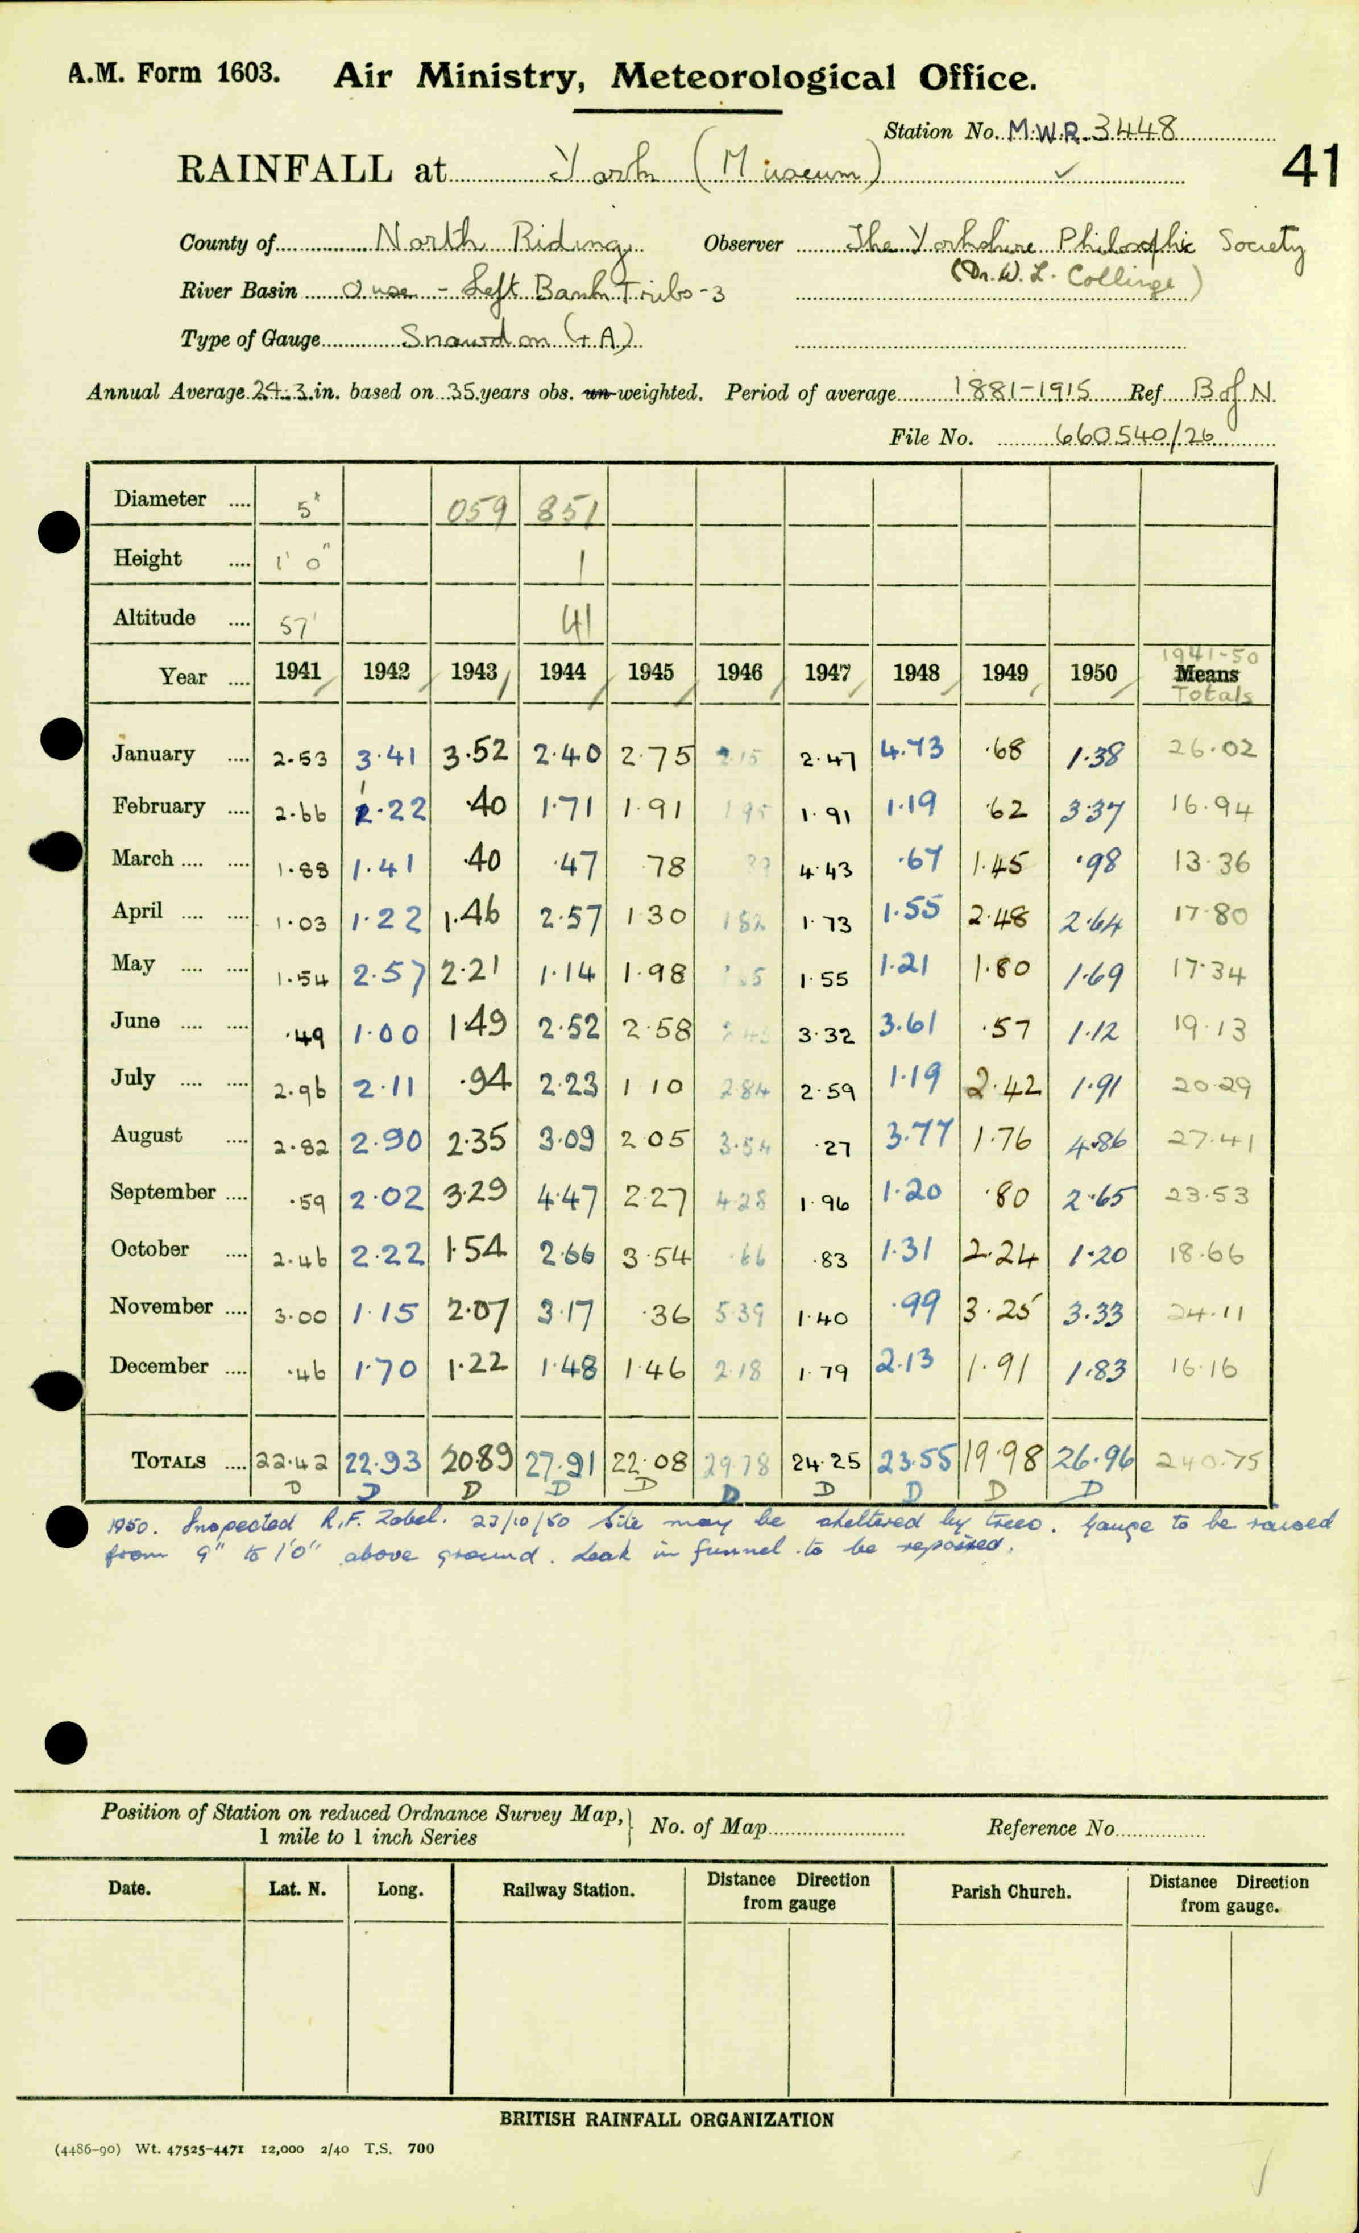 A.M. Form 1603. Air Ministry, Meteorological Office.
Station No. M.W.R. 3448
41
RAINFALL at York (Museum) ✓
County of North Riding Observer The Yorkshire Philosophic Society
(Dr. W. L. Collinge)
River Basin Ouse - Left Bank Tribs-3
Type of Gauge Snowdon (+ A)
Annual Average 24.3 in. based on 35 years obs. un-weighted. Period of average 1881-1915 Ref B of N
File No. 660540/26
Diameter .... 5" 059 851
Height .... 1' 0" 1
Altitude .... 57' 41
1941-50
Year .... 1941 1942 1943 1944 1945 1946 1947 1948 1949 1950 Means
Totals
January .... 2.53 3.41 3.52 2.40 2.75 2.15 2.47 4.73 .68 1.38 26.02
February .... 2.66 1.22 .40 1.71 1.91 1.95 1.91 1.19 .62 3.37 16.94
March .... .... 1.88 1.41 .40 .47 .78 .89 4.43 .67 1.45 .98 13.36
April .... .... 1.03 1.22 1.46 2.57 1.30 1.82 1.73 1.55 2.48 2.64 17.80
May .... .... 1.54 2.57 2.21 1.14 1.98 1.65 1.55 1.21 1.80 1.69 17.34
June .... .... .49 1.00 1.49 2.52 2.58 2.43 3.32 3.61 .57 1.12 19.13
July .... .... 2.96 2.11 .94 2.23 1.10 2.84 2.59 1.19 2.42 1.91 20.29
August .... 2.82 2.90 2.35 3.09 2.05 3.54 .27 3.77 1.76 4.86 27.41
September .... .59 2.02 3.29 4.47 2.27 4.28 1.96 1.20 .80 2.65 23.53
October .... 2.46 2.22 1.54 2.66 3.54 .66 .83 1.31 2.24 1.20 18.66
November .... 3.00 1.15 2.07 3.17 .36 5.39 1.40 .99 3.25 3.33 24.11
December .... .46 1.70 1.22 1.48 1.46 2.18 1.79 2.13 1.91 1.83 16.16
TOTALS .... 22.42 22.93 20.89 27.91 22.08 29.78 24.25 23.55 19.98 26.96 240.75
D D D D D D D D D D
1950. Inspected R.F. Zobel. 23/10/50 Site may be sheltered by trees. Gauge to be raised
from 9" to 1'0" above ground. Leak in funnel to be repaired.
Position of Station on reduced Ordnance Survey Map, 1 mile to 1 inch Series } No. of Map Reference No.
Date. Lat. N. Long. Railway Station. Distance Direction from gauge Parish Church. Distance Direction from gauge.
BRITISH RAINFALL ORGANIZATION
(4486-90) Wt. 47525-4471 12,000 2/40 T.S. 700